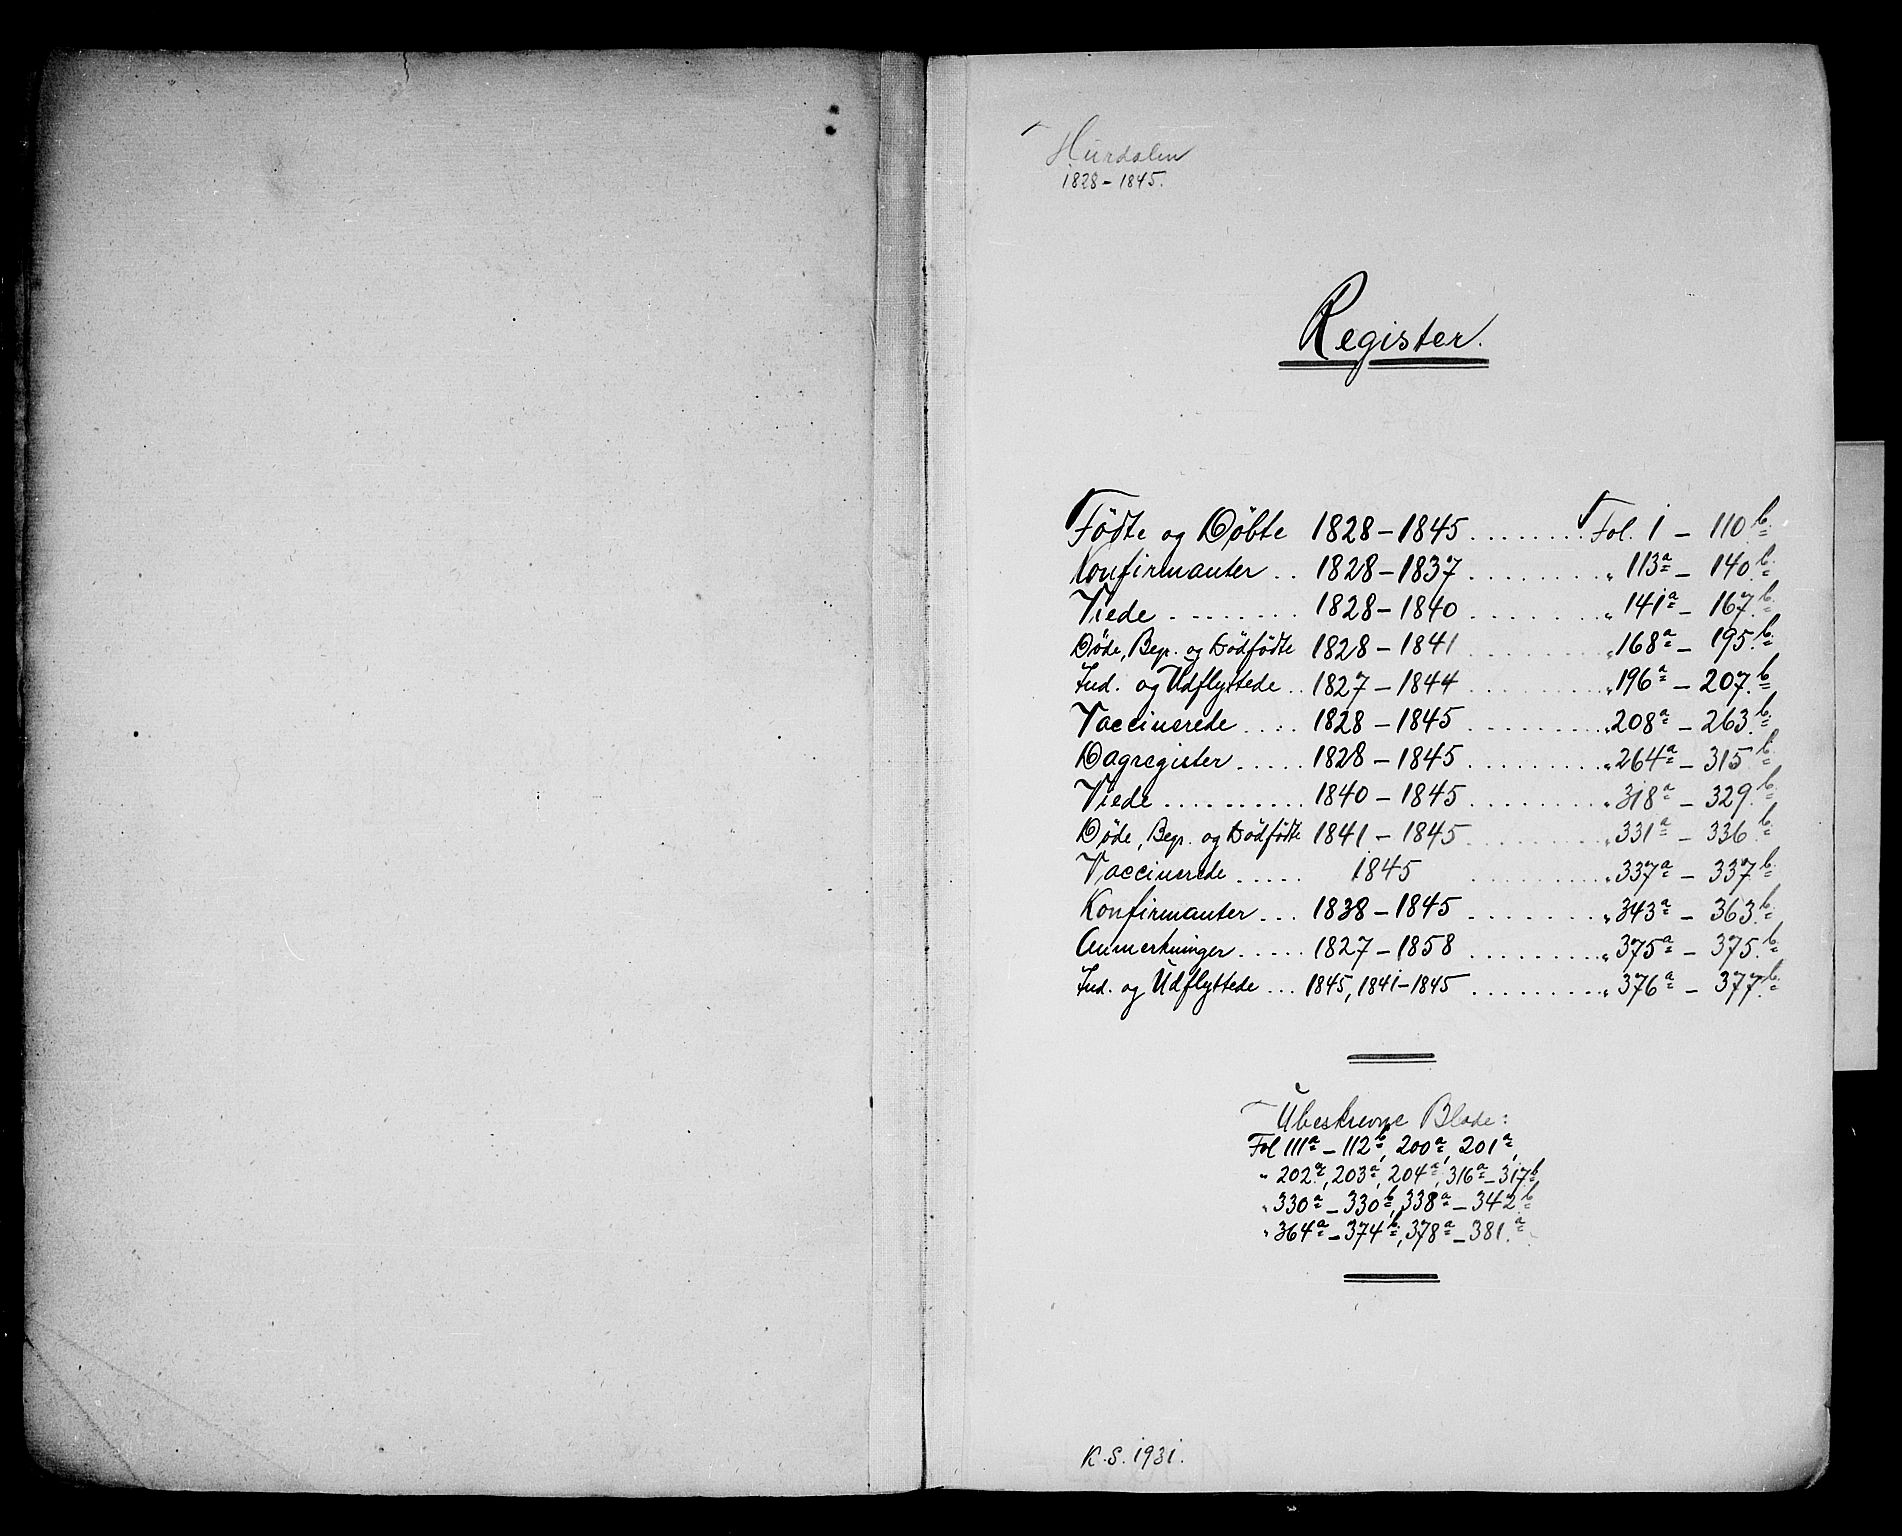 Hurdalen
1828 - 1845.
Register.
Födte og Döbte 1828 - 1845 ........ Fol. 1 - 110 b.
Konfirmanter .. 1828 - 1837 ......... „ 113 a - 140 b.
Viede ........ 1828 - 1840 ......... „ 141 a - 167 b.
Døde, Begr. og Dödfödte 1828 - 1841 ......... „ 168 a - 195 b.
Ind. og Udflyttede .. 1827 - 1844 ......... „ 196 a - 207 b.
Vaccinerede .... 1828 - 1845 ......... „ 208 a - 263 b.
Dagregister ..... 1828 - 1845 ......... „ 264 a - 315 b.
Viede .......... 1840 - 1845 ......... „ 318 a - 329 b.
Døde, Begr. og Dödfödte 1841 - 1845 ......... „ 331 a - 336 b.
Vaccinerede ..... 1845 ......... „ 337 a - 337 b.
Konfirmanter ... 1838 - 1845 ......... „ 343 a - 363 b.
Anmerkninger ..... 1827 - 1858 ......... „ 375 a - 375 b.
Ind. og Udflyttede ... 1845, 1841 - 1845 ......... „ 376 a - 377 b.
Ubeskrevne Blade:
Fol 111 a - 112 b, 200 a, 201 a,
„ 202 a, 203 a, 204 a, 316 a - 317 b,
„ 330 a - 330 b, 338 a - 342 b
„ 364 a - 374 b, 378 a - 381. a.
K. S. 1931.